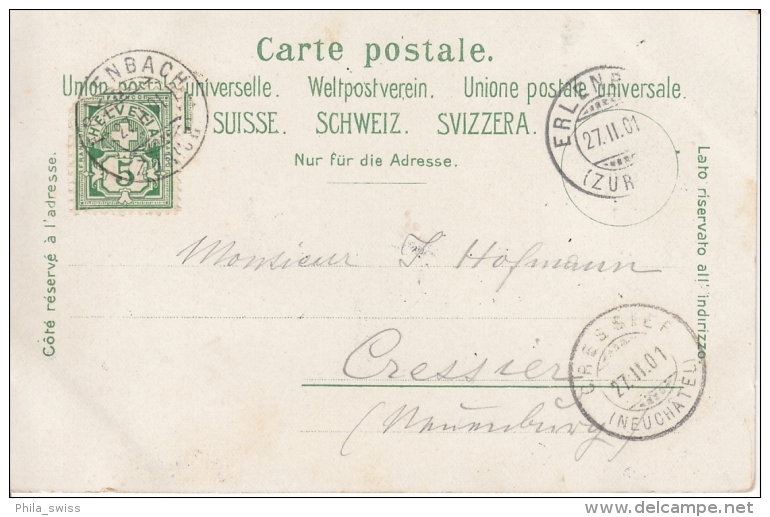 Carte postale.
Union postale universelle. Weltpostverein. Unione postale universale.
SUISSE. SCHWEIZ. SVIZZERA.
Nur für die Adresse.
Côté réservé à l'adresse.
Lato riservato all' indirizzo.
HELVETIA
5
ERLENB
27.II.01
(ZUR
Monsieur J. Hofmann
Cressier
(Neuenburg)
CRESSIER
27.II.01
(NEUCHÂTEL)
Phila_swiss
delcampe.net